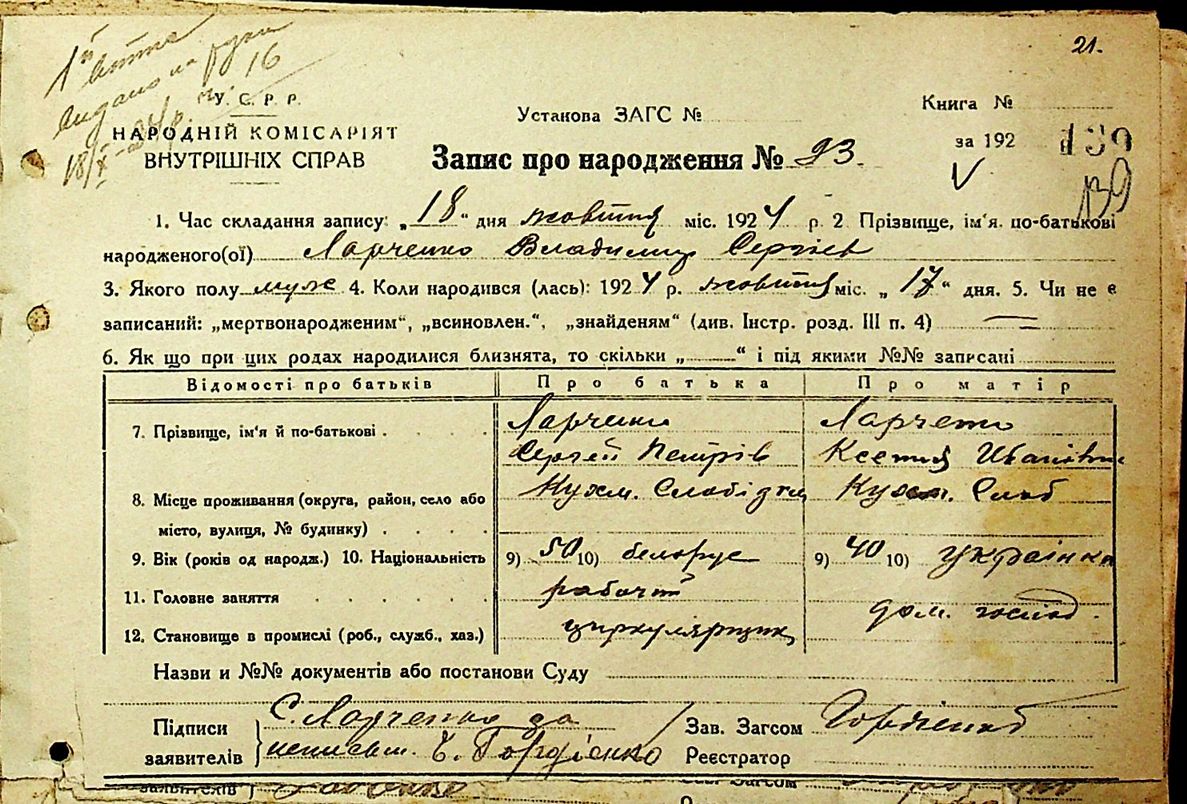 21.
1й
видано на руки
16
18/X-24р.
У. С. Р. Р.
НАРОДНІЙ КОМІСАРІЯТ
ВНУТРІШНІХ СПРАВ
Установа ЗАГС №
Книга №
за 192
139
V
139
Запис про народження № 23.
1. Час складання запису: „18“ дня жовтня міс. 1924 р. 2 Прізвище, ім'я по-батькові
народженого(ої) Ларченко Владимир Сергіев
3. Якого полу муже 4. Коли народився (лась): 1924 р. жовтня міс. „17“ дня. 5. Чи не є
записаний: „мертвонародженим“, „всиновлен.“, „знайденям“ (див. Інстр. розд. III п. 4) —
6. Як що при цих родах народилися близнята, то скільки „——“ і під якими №№ записані
Відомості про батьків Про батька Про матір
7. Прізвище, ім'я й по-батькові Ларченко Ларченко
Сергей Петрів Ксения Иванівна
8. Місце проживання (округа, район, село або Кухм. Слобідка Кухм. Слоб
місто, вулиця, № будинку)
9. Вік (років од народж.) 10. Національність 9) 50 10) белорус 9) 40 10) українка
11. Головне заняття рабочий дом. господ.
12. Становище в промислі (роб., служб., хаз.) циркулярщик
Назви и №№ документів або постанови Суду
Підписи С. Ларченко за Зав. Загсом Гордіенко
заявителів неписьм. Гордіенко Реєстратор
заявителів Загсом